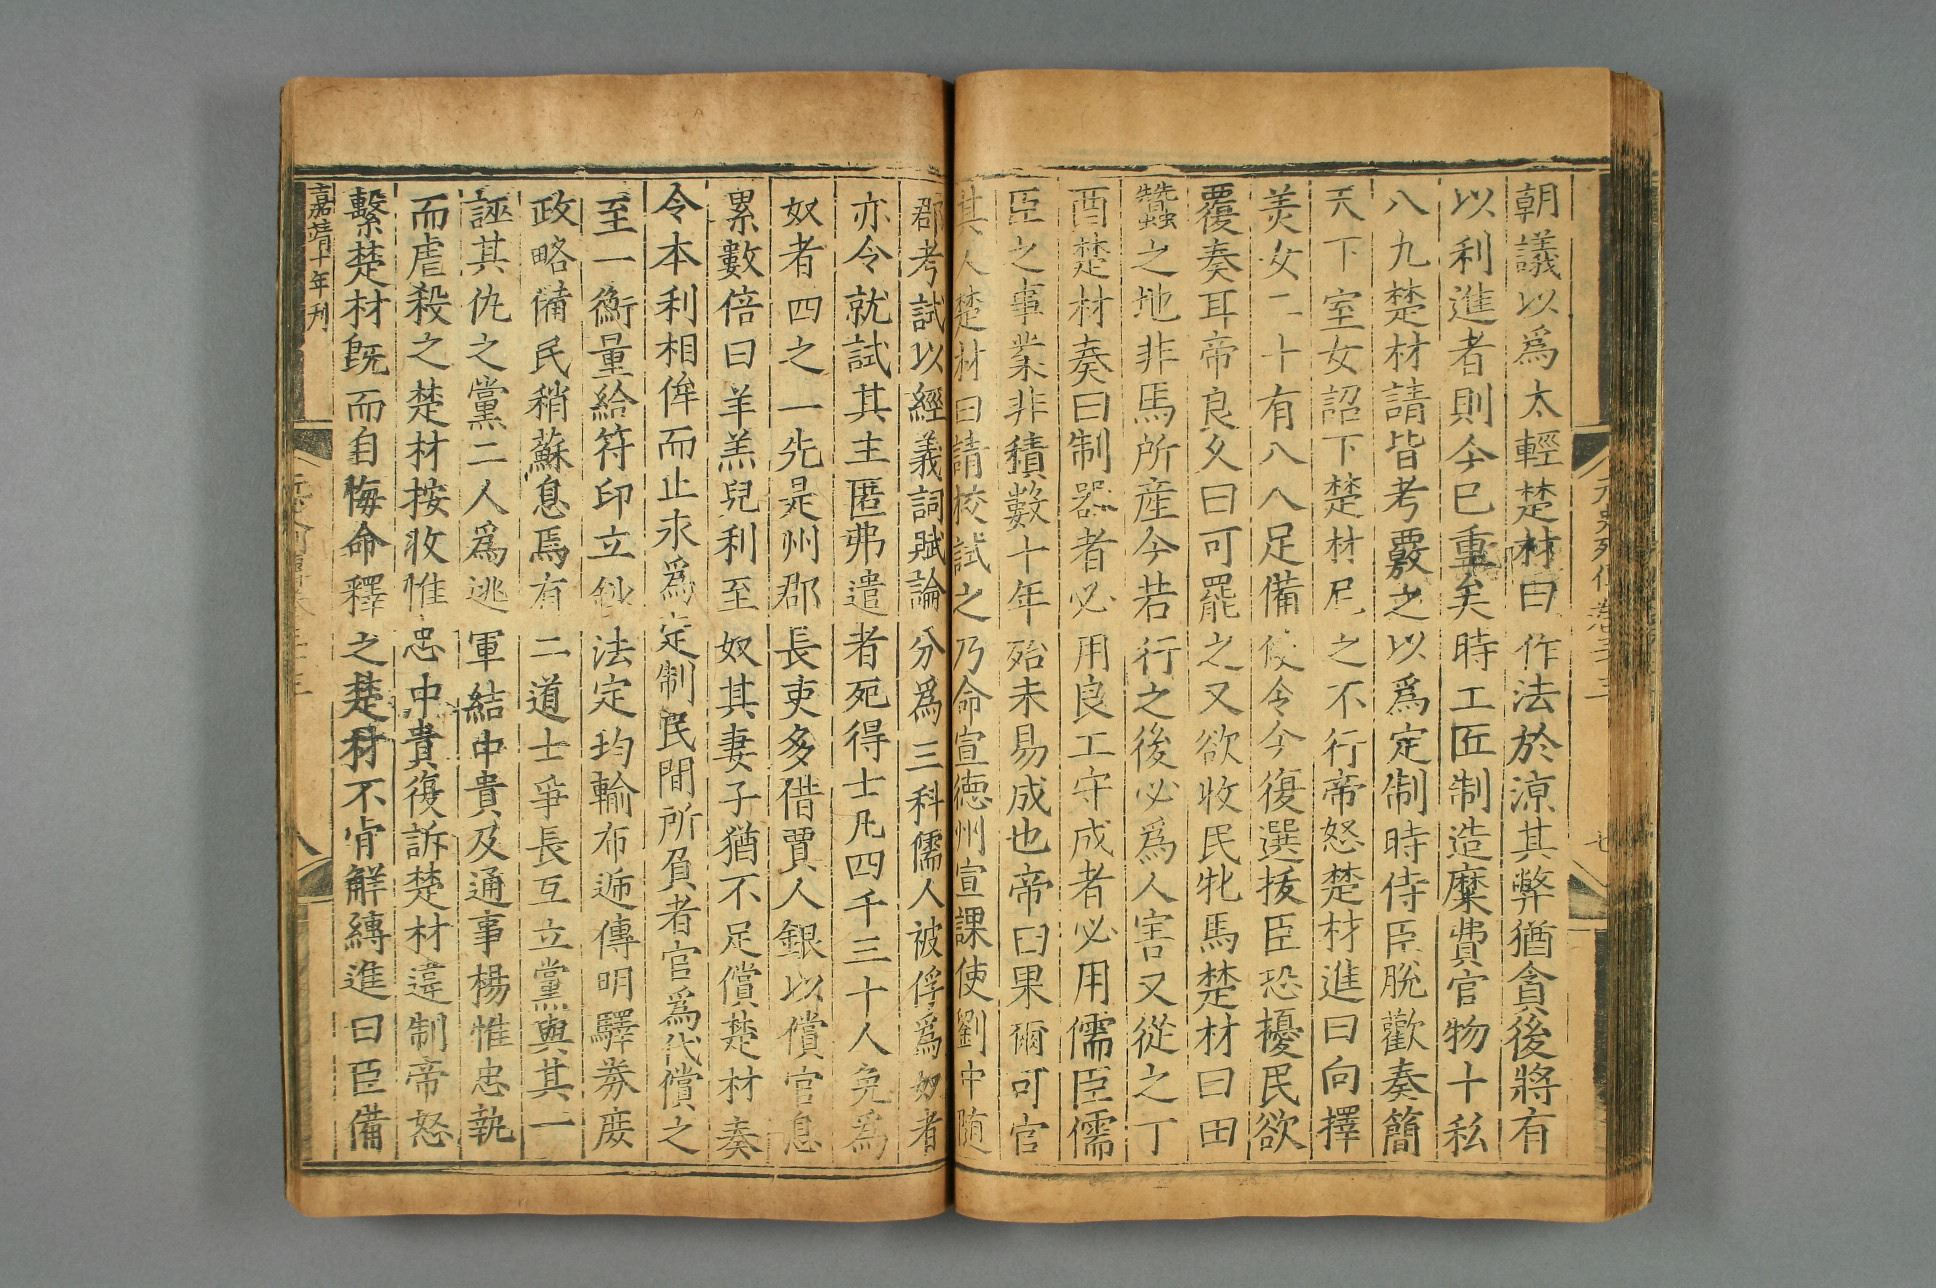 朝議以爲太輕楚材曰作法於凉其弊猶貪後將有
以利進者則今已重矣時工匠制造糜費官物十私
八九楚材請皆考覈之以爲定制時侍臣脫歡奏簡
天下室女詔下楚材尼之不行帝怒楚材進曰向擇
美女二十有八人足備使令今復選拔臣恐擾民欲
覆奏耳帝良久曰可罷之又欲收民牝馬楚材曰田
蠶之地非馬所產今若行之後必爲人害又從之丁
酉楚材奏曰制器者必用良工守成者必用儒臣儒
臣之事業非積數十年殆未易成也帝曰果爾可官
其人楚材曰請校試之乃命宣德州宣課使劉中隨
郡考試以經義詞賦論分爲三科儒人被俘爲奴者
亦令就試其主匿弗遣者死得士凡四千三十人免爲
奴者四之一先是州郡長吏多借賈人銀以償官息
累數倍曰羊羔兒利至奴其妻子猶不足償楚材奏
令本利相侔而止永爲定制民間所負者官爲代償之
至一衡量給符印立鈔法定均輸布遞傳明驛券庶
政略備民稍蘇息焉有二道士爭長互立黨與其一
誣其仇之黨二人爲逃軍結中貴及通事楊惟忠執
而虐殺之楚材按收惟忠中貴復訴楚材違制帝怒
繫楚材既而自悔命釋之楚材不肯解縛進曰臣備
嘉靖十年刊
八